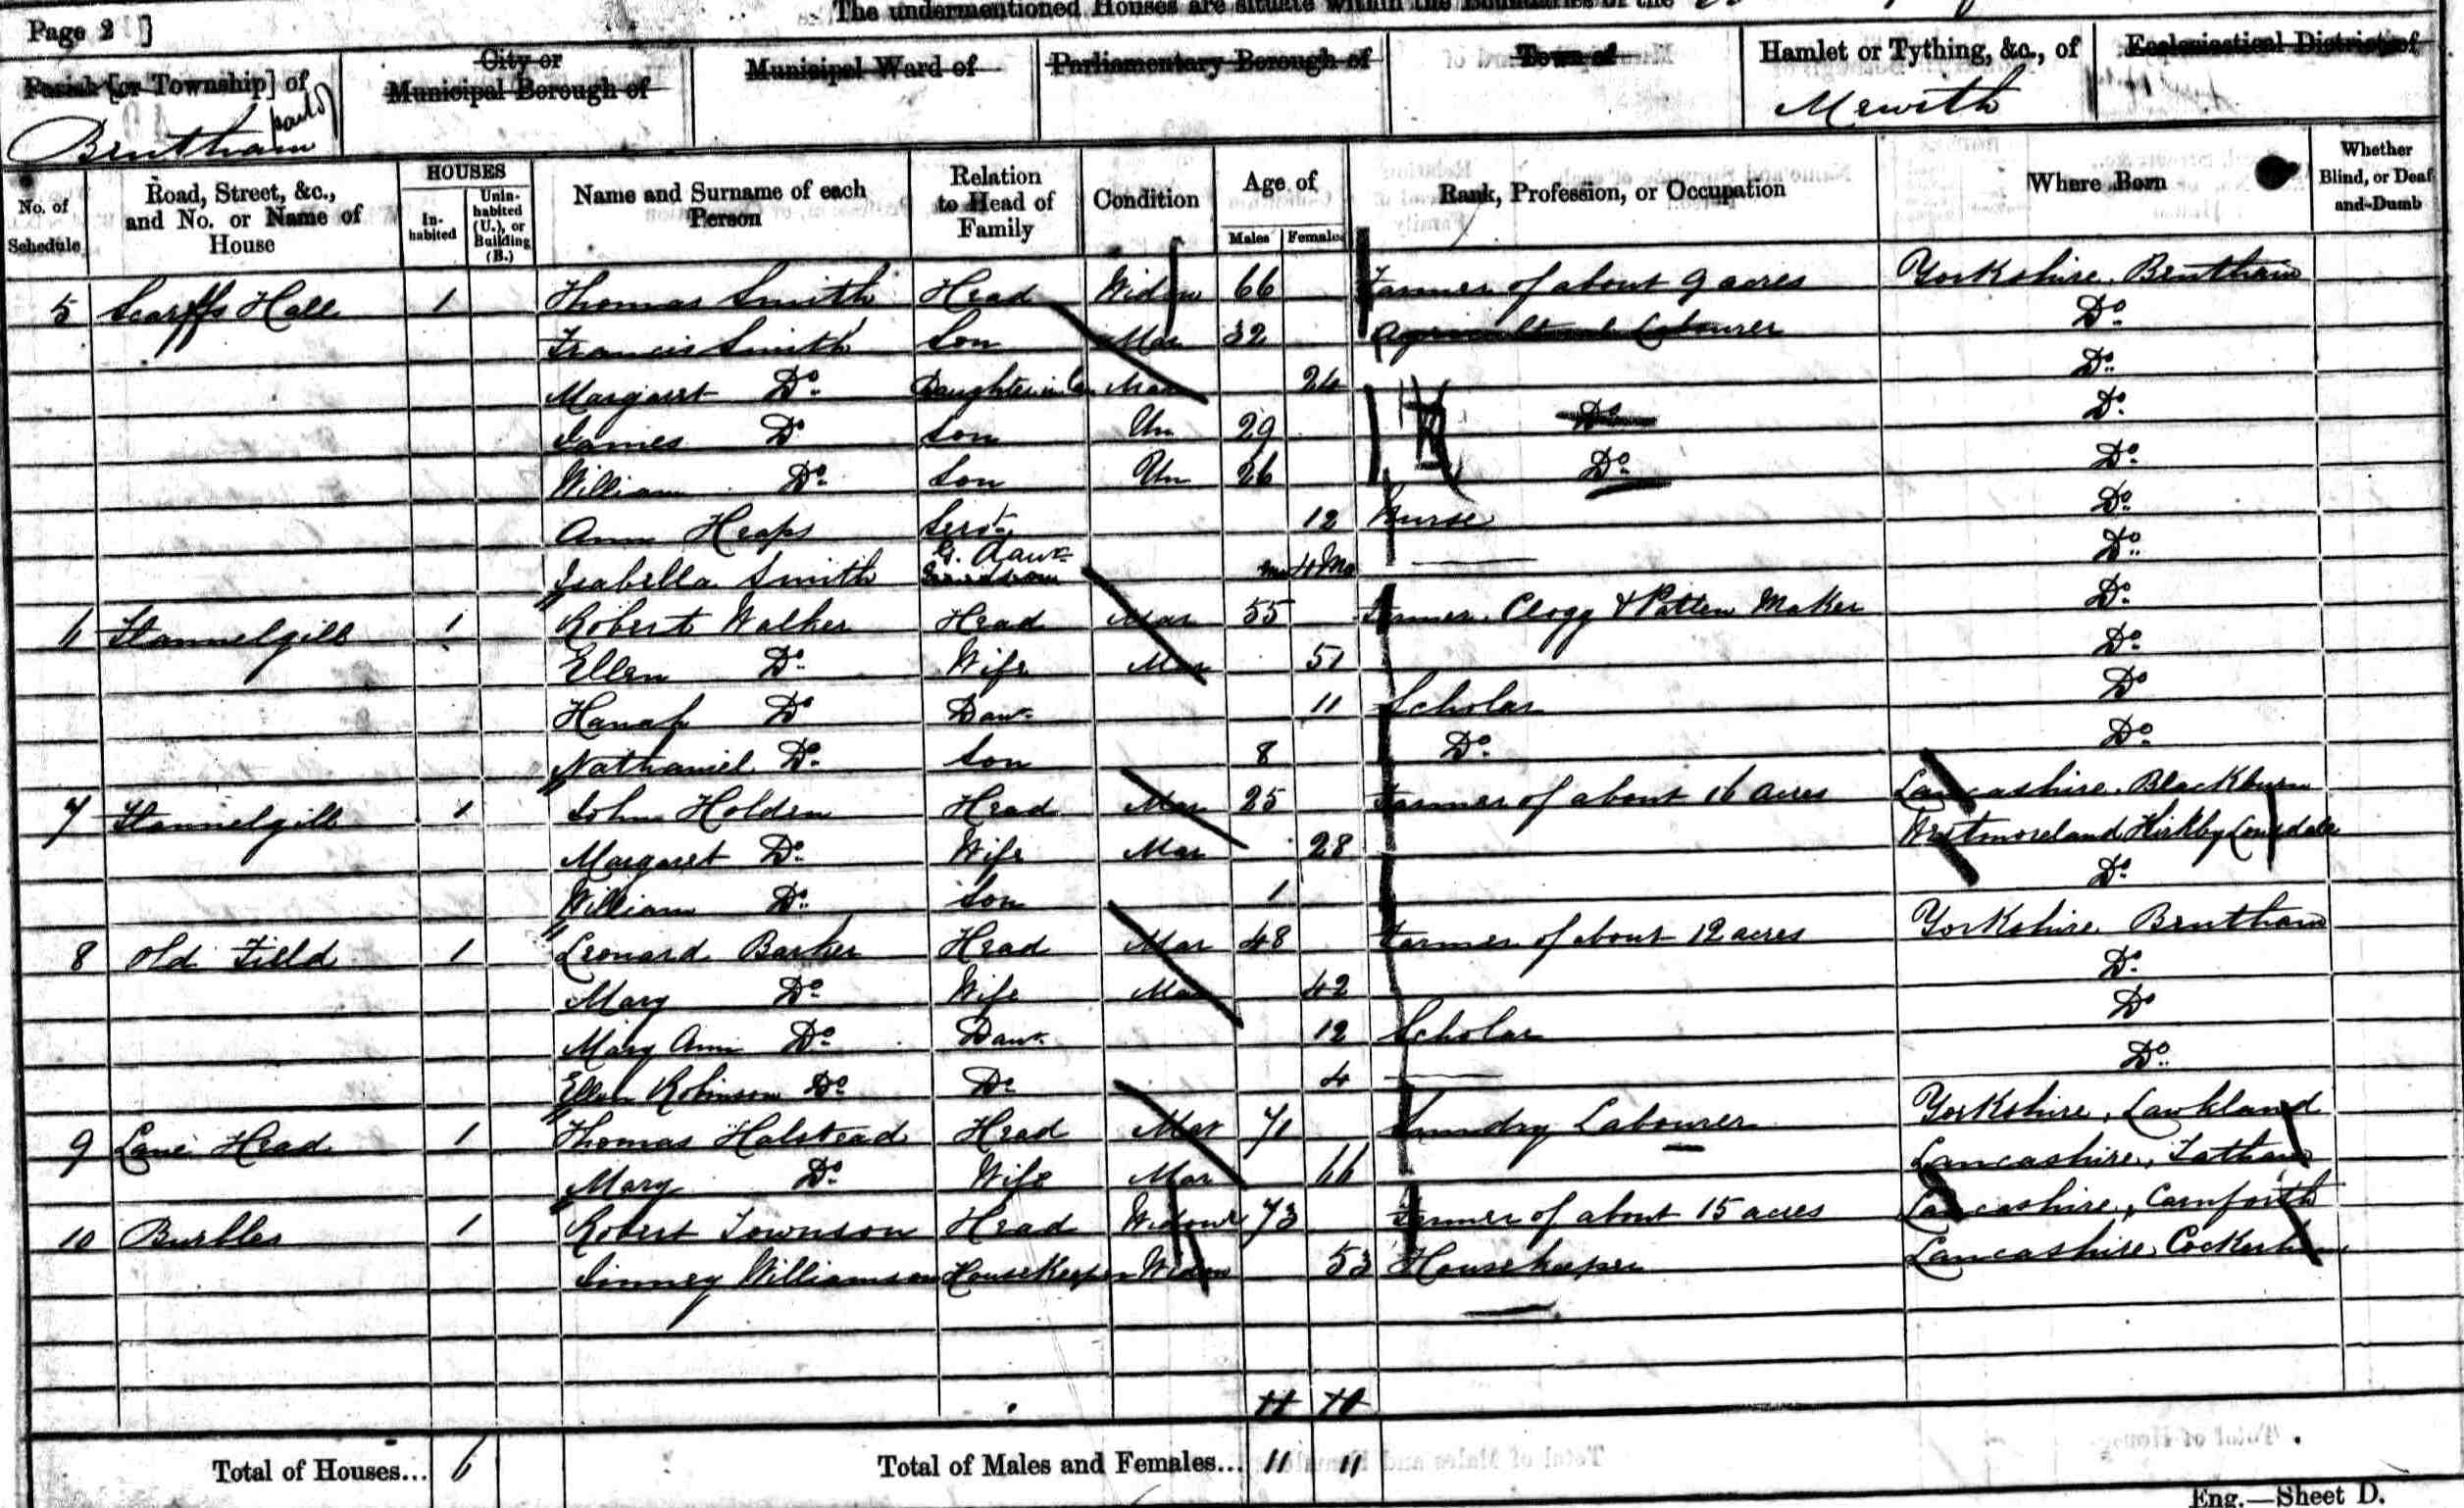 Page 2 ]
The undermentioned Houses are situate within the Boundaries of the
Parish [or Township] of
Bentham part of
City or
Municipal Borough of
Municipal Ward of
Parliamentary Borough of
Town of
Hamlet or Tything, &c., of
Mewith
Ecclesiastical District of
No. of Schedule
Road, Street, &c., and No. or Name of House
HOUSES
In-habited
Unin-habited (U.), or Building (B.)
Name and Surname of each Person
Relation to Head of Family
Condition
Age of
Males Females
Rank, Profession, or Occupation
Where Born
Whether Blind, or Deaf-and-Dumb
5 Scarffs Hall 1 Thomas Smith Head Widow 66 Farmer of about 9 acres Yorkshire. Bentham
Francis Smith Son Mar 32 Agricultural Labourer Do.
Margaret Do. Daughter in law Mar 24 Do.
James Do Son Un 29 Do Do.
William Do. Son Un 26 Do. Do.
Ann Heaps Servt. 12 Nurse Do.
Isabella Smith G. Daur. 4 Mo Do.
6 Flannelgill 1 Robert Walker Head Mar 55 Farmer. Clogg & Patten Maker Do.
Ellen Do. Wife Mar 51 Do.
Hanah Do Daur. 11 Scholar Do
Nathaniel Do. Son 8 Do. Do.
7 Flannelgill 1 John Holden Head Mar 25 Farmer of about 16 acres Lancashire. Blackburn
Margaret Do. Wife Mar 28 Westmoreland Kirkby Lonsdale
William Do. Son 1 Do.
8 Old Field 1 Leonard Barker Head Mar 48 Farmer of about 12 acres Yorkshire. Bentham
Mary Do. Wife Mar 42 Do.
Mary Ann Do. Daur. 12 Scholar Do
Ellen Robinson Do. Do 4 Do.
9 Lane Head 1 Thomas Halstead Head Mar 71 Sundry Labourer Yorkshire, Lawkland
Mary Do. Wife Mar 66 Lancashire, Tatham
10 Burbles 1 Robert Townson Head Widowr 73 Farmer of about 15 acres Lancashire, Carnforth
Williamson Housekeeper Widow 53 Housekeeper Lancashire, Cockerham
Total of Houses... 6 Total of Males and Females... 11 11
Eng.—Sheet D.